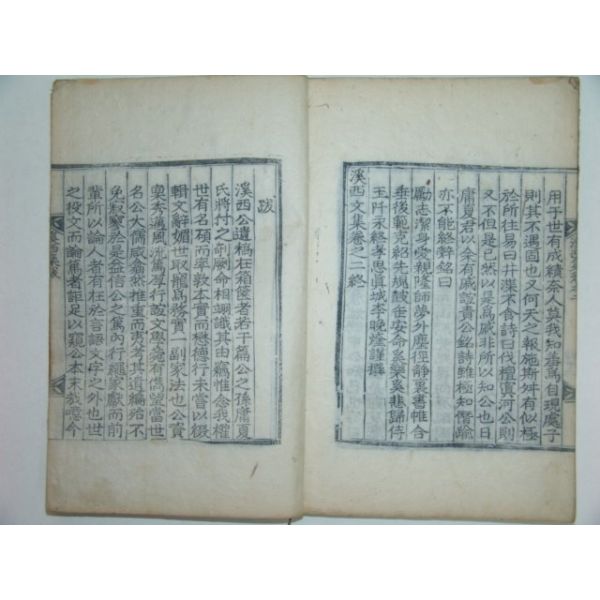 用于世有成績奈人莫我知養篤自現處子
則其不遇固也又何天之報施斯舛有似極
於所往易曰井渫不食詩曰伐檀寘河公則
又不但是已然以是爲戚非所以知公也日
庸夏君以余有戚誼責公銘詩雖極知僭踰
亦不能終辭銘曰
勵志潔身受親隆師夢外塵徑靜裏書帷含
垂後範克紹先規酸 安命 樂 悲歸侍
玉阡永終孝思眞城李晩煃謹撰
溪西文集卷之二終
跋
溪西公遺稿在箱篋者若干篇公之孫庸夏
氏將付之剞劂命相翊識其由竊惟念我權
世有名碩而率敦本實而懋德行未嘗以綴
輯文辭媚世取寵爲務實一副家法也公資
禀秀邁風流篤厚行誼文學菀有儁望當世
名公大儒咸翕然推重而夷考其遺編殆不
免寂寥於是益信公之篤內行襲家猷而前
輩所以論人者有在於言語文字之外也世
之役文而論篤者詎足以窺公本末哉噫今